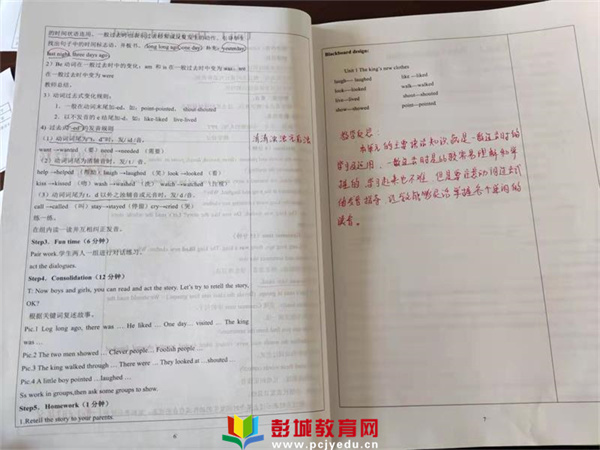 的时间状语连用，一般过去时也表示过去经常或反复发生的动作。引导学生
找出句子中的时间标志语，并板书。(long long ago, one day 和 yesterday
last night, three days ago)
2）Be 动词在一般过去时中的变化：am 和 is 在一般过去时中变为 was，are
在一般过去时中变为 were
教师总结。
3）动词过去式变化规则：
1．一般在动词末尾加-ed，如：point-pointed， shout-shouted
2．以不发音的 e 结尾加-d，如：like-liked live-lived
4) 过去式-ed 的发音规则
（1）动词词尾为"t, d"时，发/ id /音，
want →wanted （要） need →needed （需要）
（2）动词词尾为清辅音时，发/ t / 音。
help →helped （帮助） laugh →laughed （笑） look →looked （看）
kiss →kissed （吻） wash →washed （洗） watch →watched （注视）
（3）动词词尾为 t，d 以外之浊辅音或元音时，发/ d /音。
call →called （叫） stay →stayed （停留） cry →cried （哭）
练一练。
在组内读一读并互相纠正发音。
Step3．Fun time（6 分钟）
Pair work.学生两人一组进行对话练习。
act the dialogues.
Step4．Consolidation（12 分钟）
T: Now boys and girls, you can read and act the story. Let's try to retell the story,
OK?
根据关键词复述故事。
Pic.1 Log long ago, there was … He liked … One day… visited … The king
was …
Pic.2 The two men showed … Clever people… Foolish people …
Pic.3 The king walked through … There were … They looked at …shouted…
Pic.4 A little boy pointed …laughed …
Ss work in groups,then ask some groups to show.
Step5．Homework（1 分钟）
1.Resell the story to your parents.
6
清清浊浊元浊浊
Blackboard design:
Unit 1 The king's new clothes
laugh— laughed like —liked
look—looked walk—walked
live—lived shout—shouted
show—showed point—pointed
教学反思：
本单元的主要语法知识点是一般过去时的
学习及运用，一般过去时是比较容易理解和掌
握的，学习起来也不难，但是要注意动词过去式
的发音指导，让学生能够灵活掌握各个单词的
读音。
7
彭城教育网
www.pcjyedu.cn